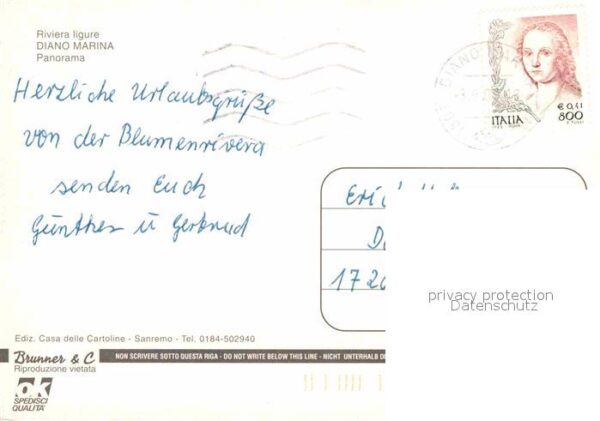 Riviera ligure
DIANO MARINA
Panorama
Herzliche Urlaubsgrüße
von der Blumenrivera
senden Euch
Günther u Gertrud
DIANO
€ 0,41
800
ITALIA
D
1726
privacy protection
Datenschutz
Ediz. Casa delle Cartoline - Sanremo - Tel. 0184-502940
Brunner & C
Riproduzione vietata
NON SCRIVERE SOTTO QUESTA RIGA - DO NOT WRITE BELOW THIS LINE - NICHT UNTERHALB
OK
SPEDISCI
QUALITÀ